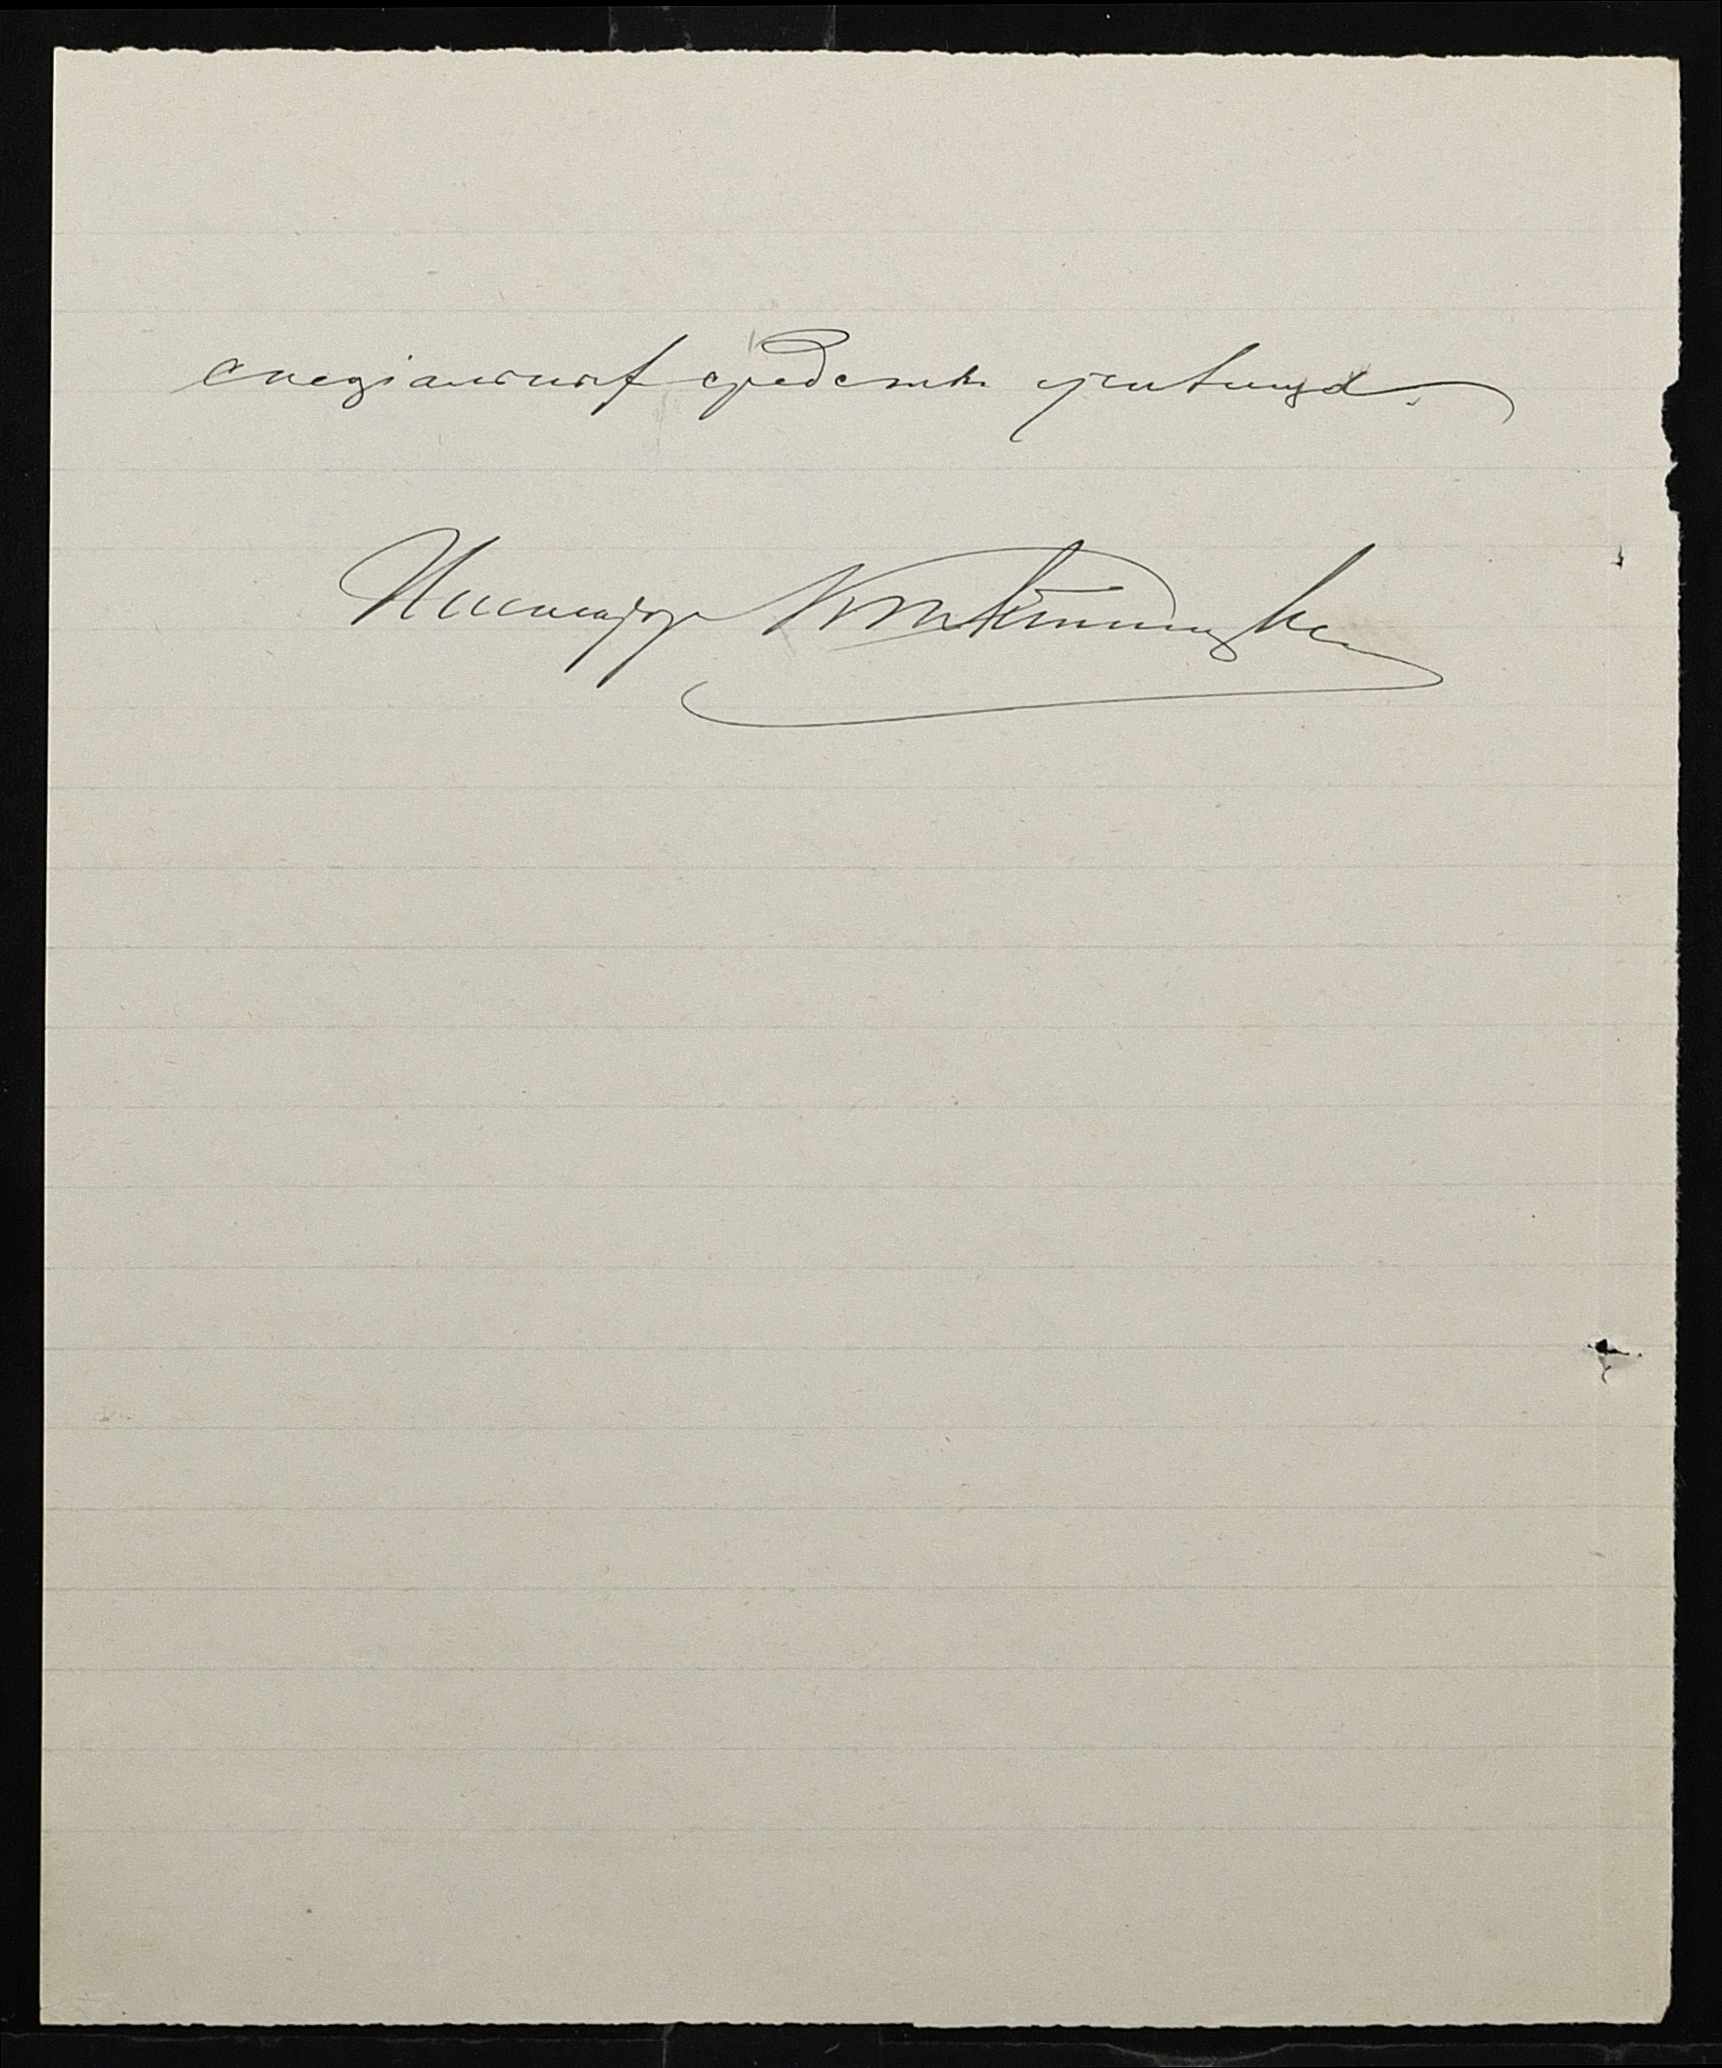 спеціальныхъ средствъ училища.
Инспекторъ